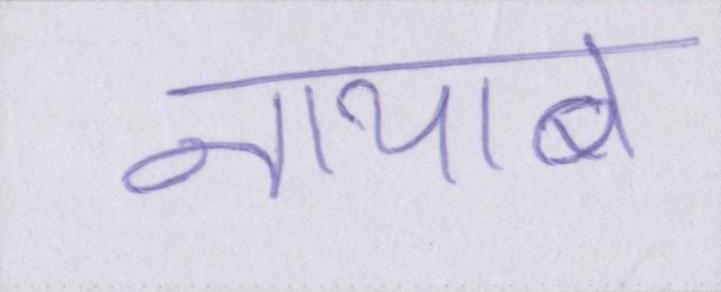 नायाब